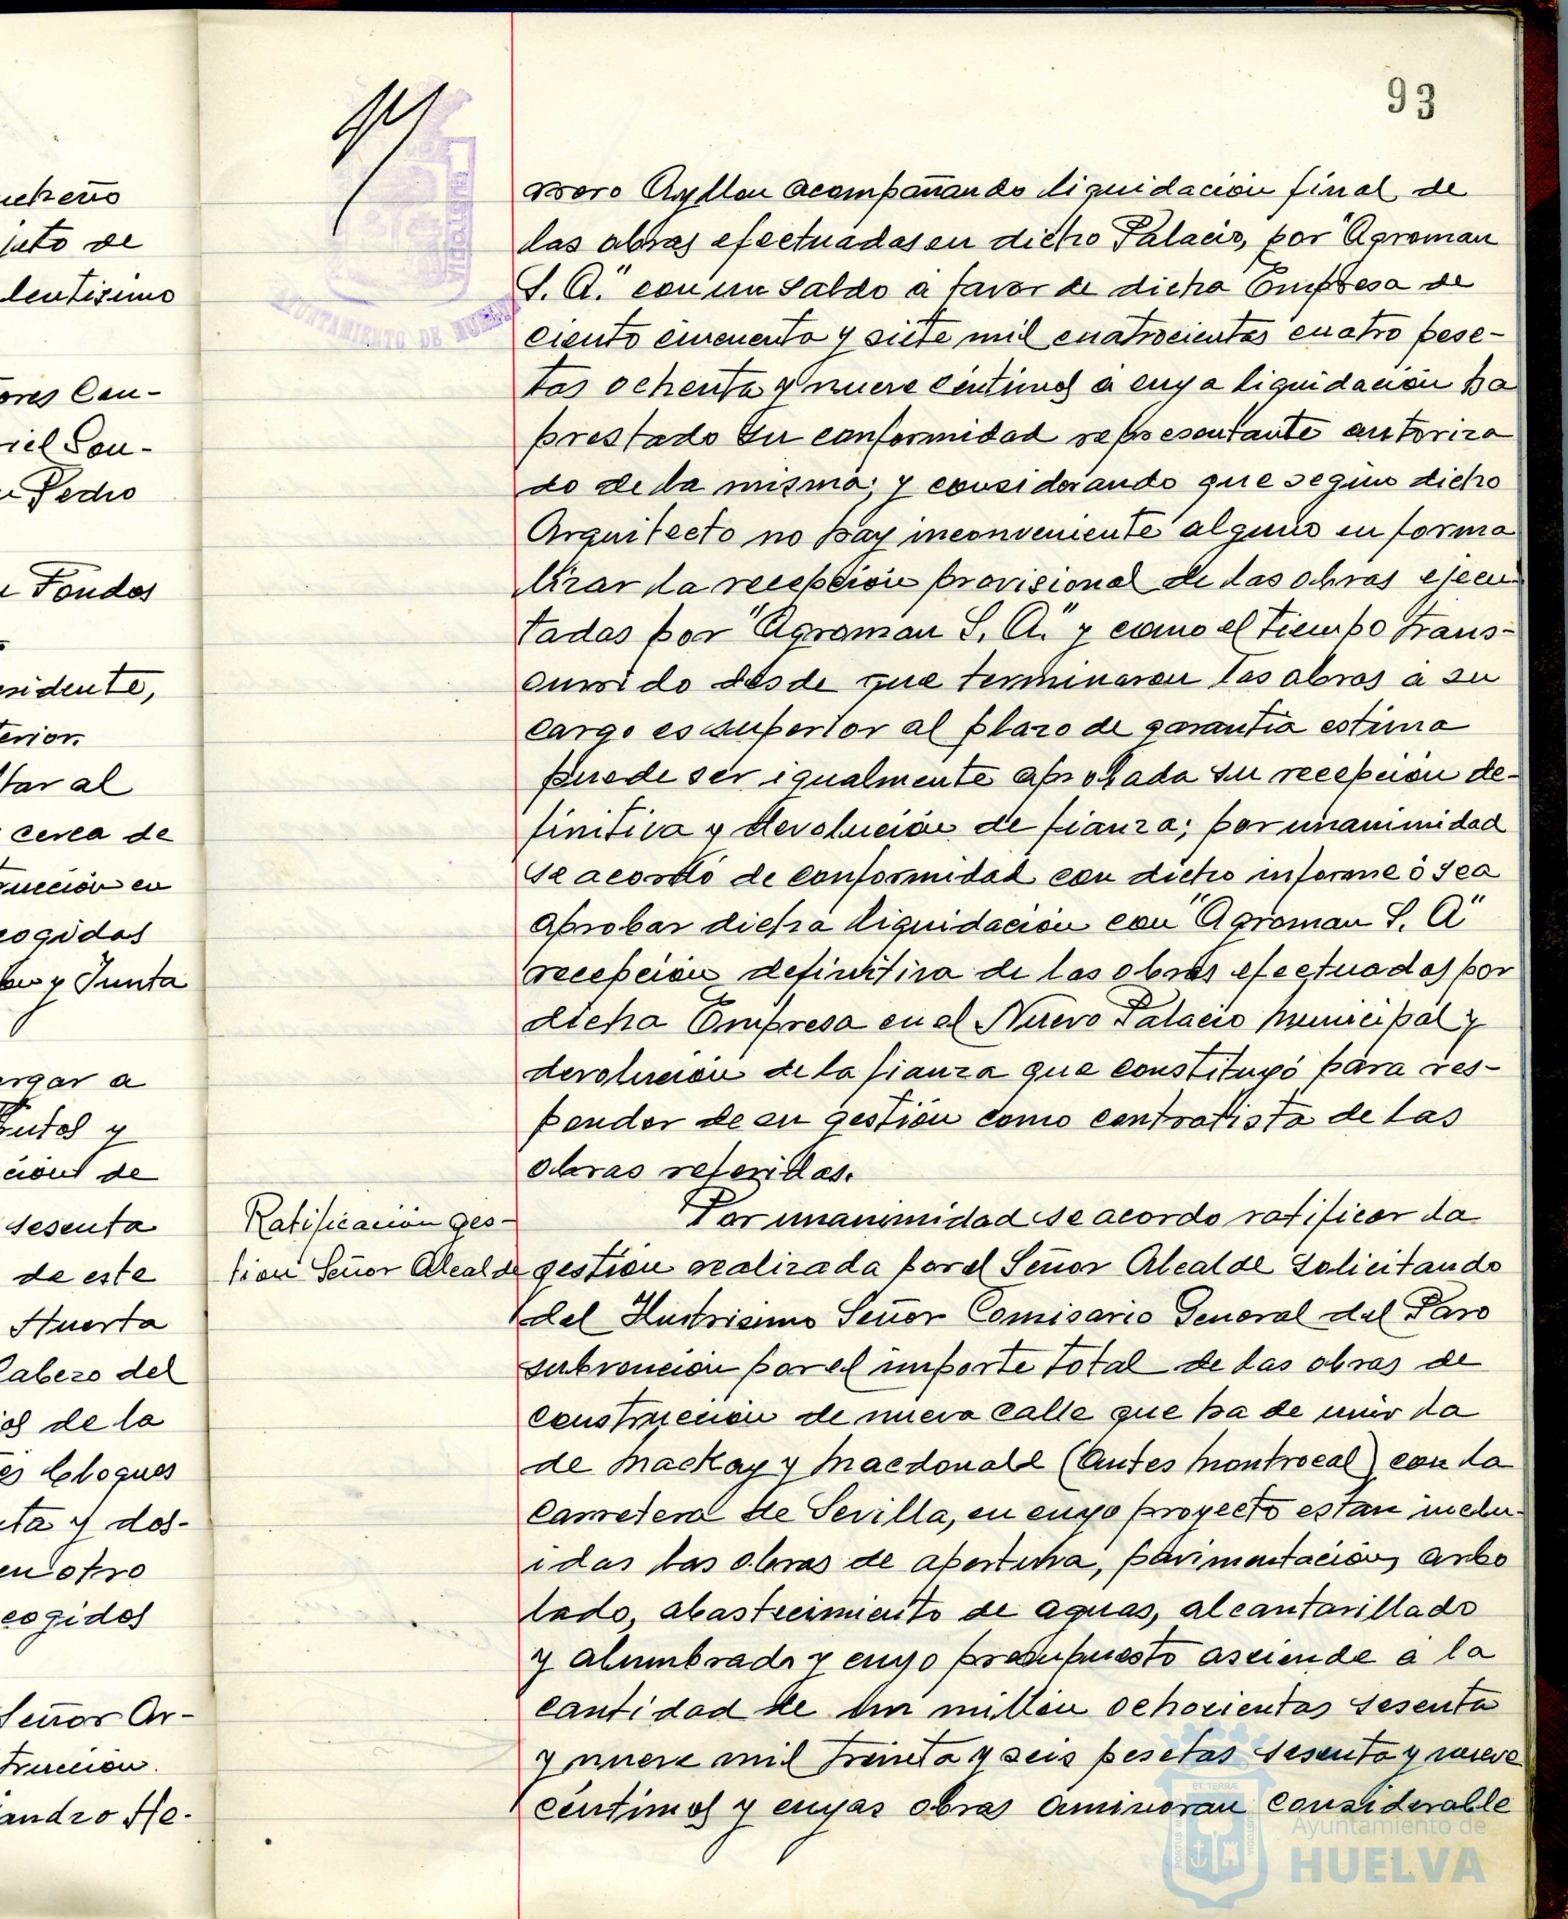 93
ucheño
juto de
lentísimo
ores Con-
riel Son-
Pedro
Fondos
sidente,
erior.
tar al
cerca de
rucción en
cogidos
y Junta
argar a
y
de
sesenta
de este
Huerta
Cabezo del
de la
bloques
y dos-
en otro
cogidos
Señor Ar-
trucción.
andro He-
AYUNTAMIENTO DE HUELVA
Ratificación ges-
tion Señor Alcalde
rroro Ayllon acompañando liquidación final de
las obras efectuadas en dicho Palacio, por "Agroman
S. A." con un saldo a favor de dicha Empresa de
ciento cincuenta y siete mil cuatrocientas cuatro pese-
tas ochenta y nueve céntimos a cuya liquidación ha
prestado su conformidad representante autoriza
do de la misma; y considerando que según dicho
Arquitecto no hay inconveniente alguno en forma
lizar la recepción provisional de las obras ejecu
tadas por "Agroman S. A." y como el tiempo trans-
currido desde que terminaron las obras a su
cargo es superior al plazo de garantía estima
puede ser igualmente aprobada su recepción de-
finitiva y devolución de fianza; por unanimidad
se acordó de conformidad con dicho informe ó sea
aprobar dicha liquidación con "Agroman S. A"
recepción definitiva de las obras efectuadas por
dicha Empresa en el Nuevo Palacio Municipal y
devolución de la fianza que constituyó para res-
ponder de su gestión como contratista de las
obras referidas.
Por unanimidad se acordo ratificar la
gestión realizada por el Señor Alcalde solicitando
del Ilustrisimo Señor Comisario General del Paro
subvención por el importe total de las obras de
construcción de nueva calle que ha de unir la
de Mackay y Macdonald (antes Montrocal) con la
Carretera de Sevilla, en cuyo proyecto estan inclu-
idas las obras de apertura, pavimentación, arbo
lado, abastecimiento de aguas, alcantarillado
y alumbrado y cuyo presupuesto asciende a la
cantidad de un millón ochocientas sesenta
y nueve mil treinta y seis pesetas sesenta y nueve
céntimos y cuyas obras aminoran considerable
Ayuntamiento de
HUELVA